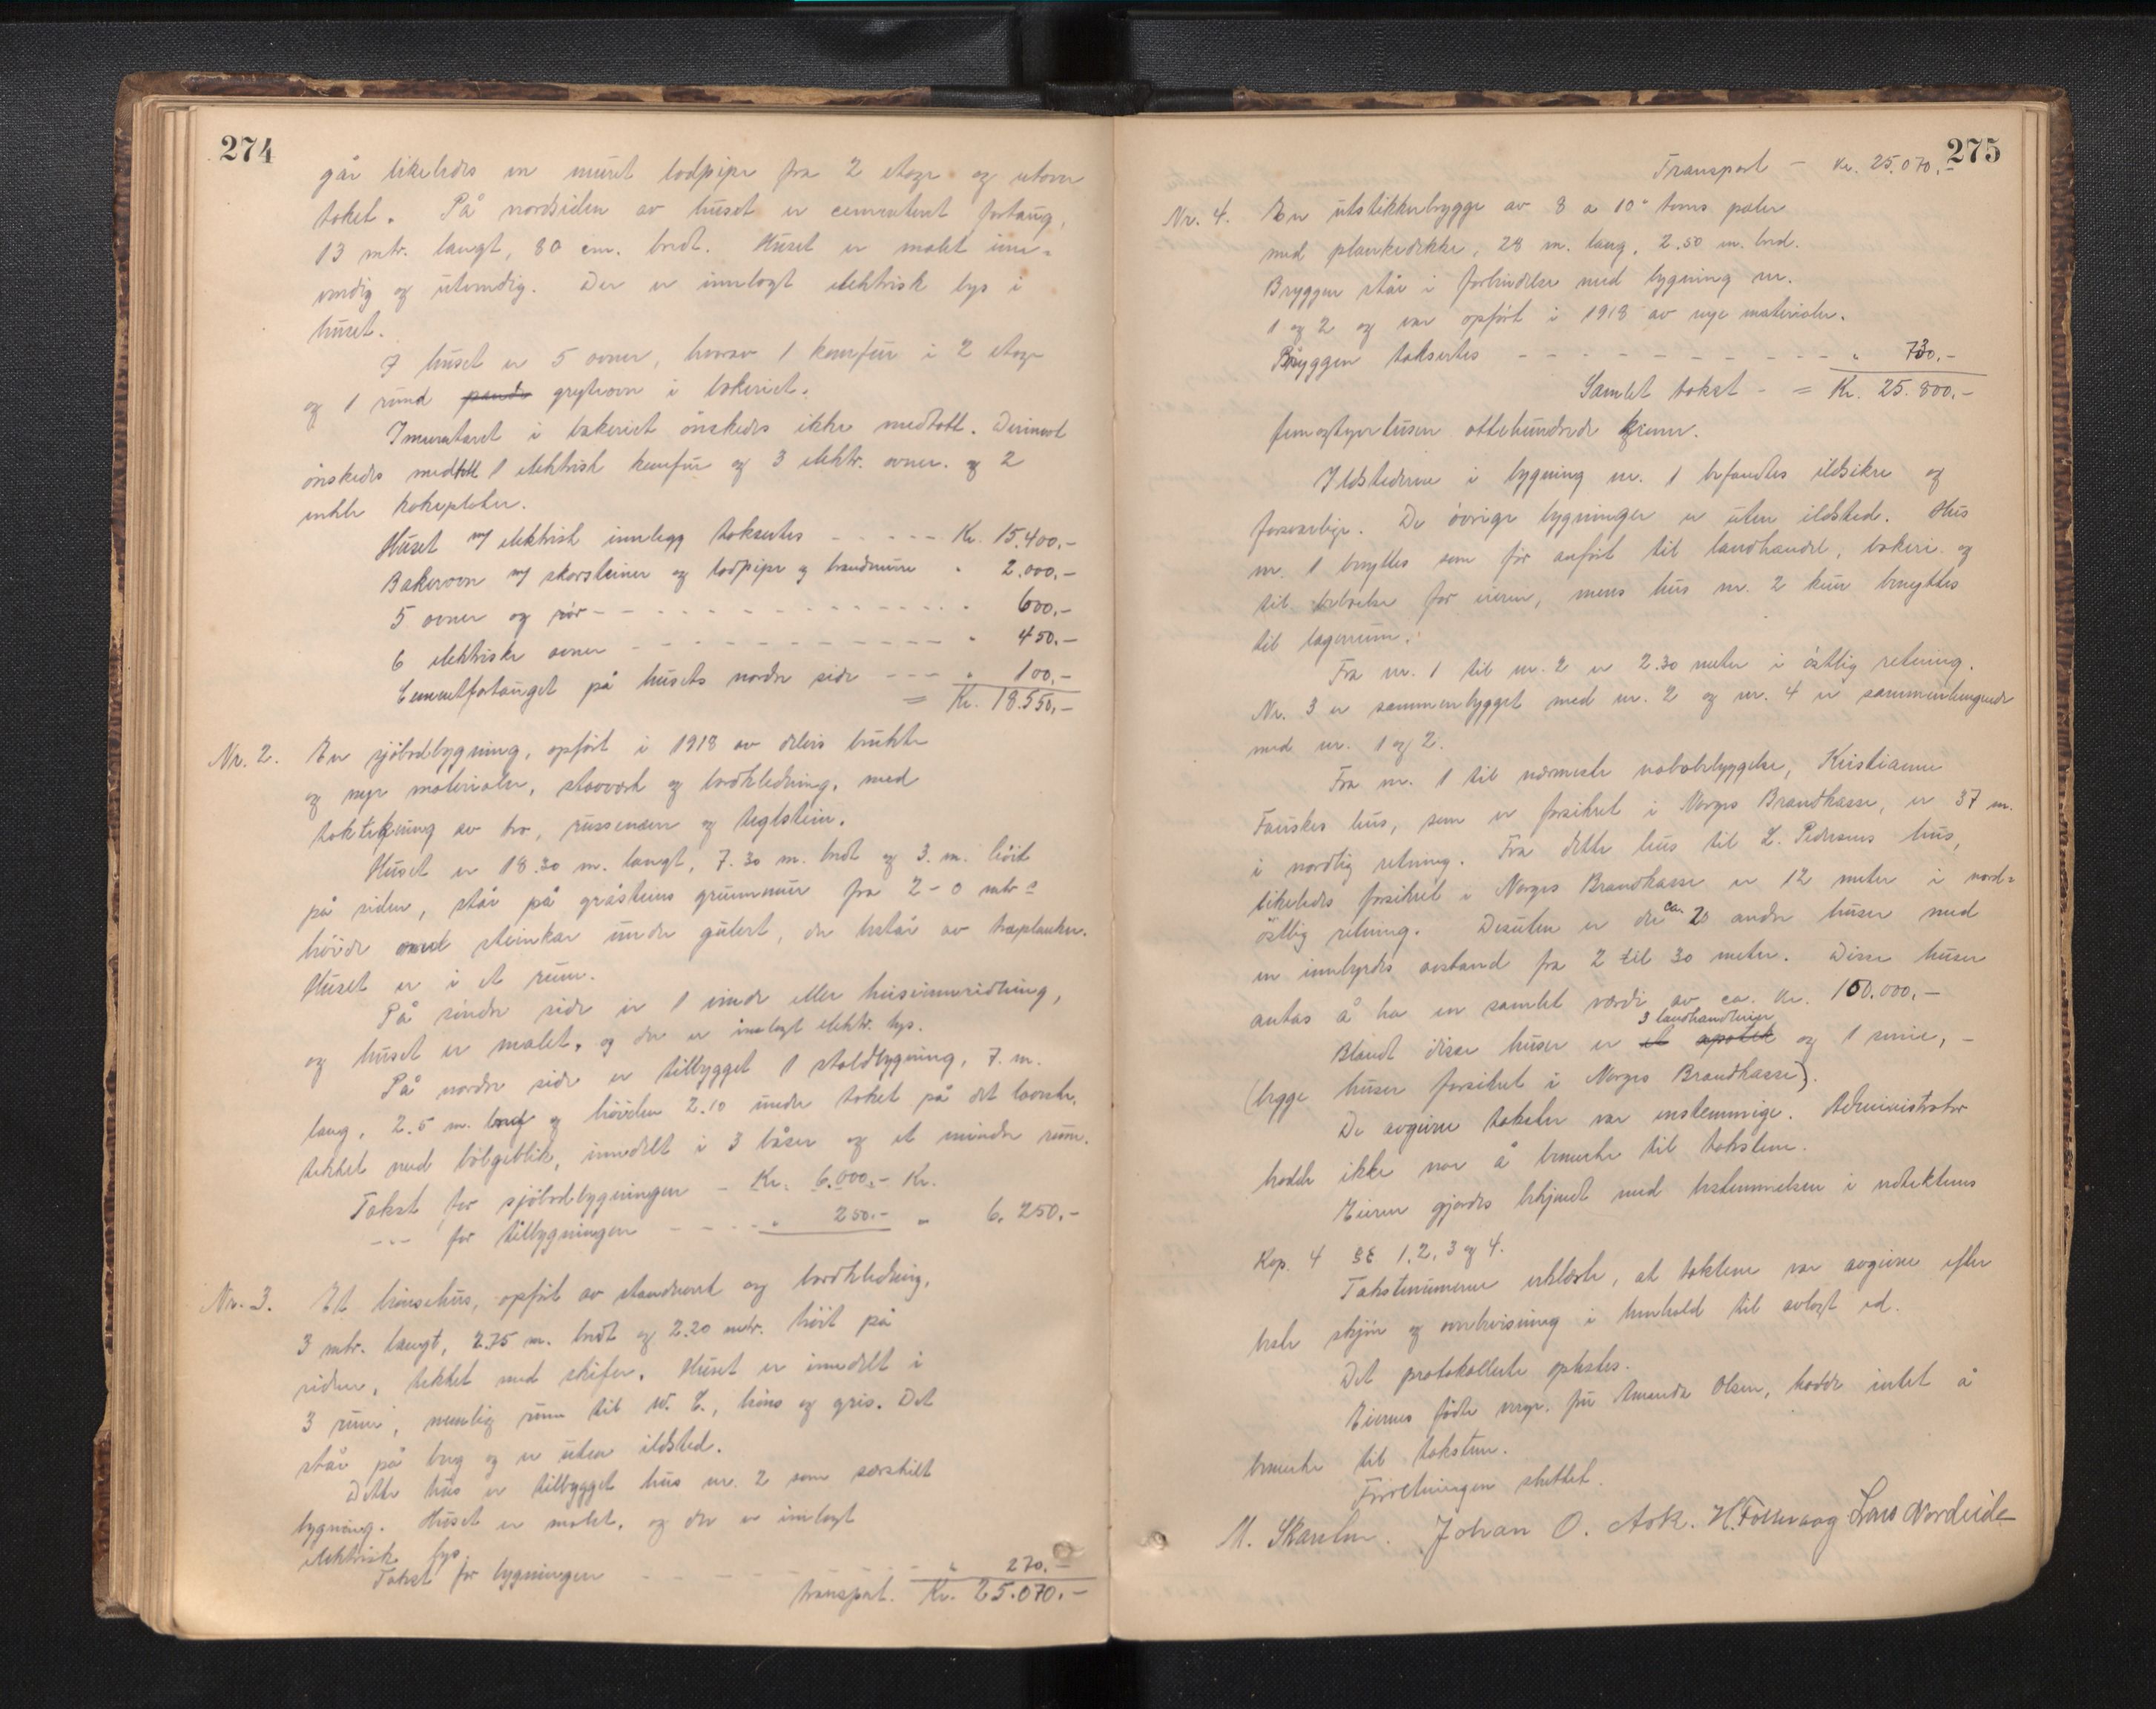 274
går likeledes en muret lodpipe fra 2 etage og utover
taket. På nordsiden av huset er cementert fortaug,
13 mtr. langt, 80 cm. bredt. Huset er malet inn-
vendig og utvendig. Der er innlagt elektrisk lys i
huset.
I huset er 5 ovner, hvorav 1 komfur i 2 etage
og 1 rund gryteovn i bakeriet.
Inventaret i bakeriet önskedes ikke medtatt. Derimot
önskedes medtatt 1 elektrisk komfur og 3 elektr. ovner. og 2
enkle kokeplater.
Huset m/ elektrisk innlegg taksertes - - - - - Kr. 15.400,-
Bakerovn m/ skorsteiner og lodpipe og brandmure " 2.000,-
5 ovner og rör - - - - - - - - - - - - " 600,-
6 elektriske ovner - - - - - - - - - - " 450.-
Cementfortauget på husets nordre side - - - " 100,-
= Kr. 18.550,-
Nr. 2. En sjöbodbygning, opfört i 1918 av delvis brukte
og nye materialer, stavverk og bordkledning, med
taktekning av bro, russenever og teglstein.
Huset er 18.30 m. langt, 7.30 m. bredt og 3. m. höit
på siden, står på gråsteins grunnmur fra 2 - 0 mtr
höide med steinkar under gulvet, der består av træplanker.
Huset er i et rum.
På sindre side er 1 vinde eller heiseinnredning,
og huset er malet, og der er innlagt elektr. lys.
På nordre side er tilbygget 1 staldbygning, 7. m.
lang, 2.5 m. bred og höiden 2.10 under taket på det laveste,
tekket med bölgeblik, inndelt i 3 båser og et mindre rum.
Takst for sjöbodbygningen - Kr. 6.000.- Kr.
-"- for tilbygningen - - - - " 250.- " 6.250,-
Nr. 3. Et hönsehus, opfört av standverk og bordkledning,
3 mtr. langt, 2.75 m. bredt og 2.20 mtr. höit på
siden, tekket med skifer. Huset er inndelt i
3 rum, nemlig rum til W. C., höns og gris. Det
står på brug og er uten ildsted.
Dette hus er tilbygget hus nr. 2 som særskilt
bygning. Huset er malet, og der er innlagt
elektrisk lys.
Takst for bygningen - - - - - - - " 270.-
transport. Kr. 25.070.-
275
Transport - Kr. 25.070,-
Nr. 4. En utstikkerbrygge av 8 a 10" toms pæler
med plankedekke, 28 m. lang, 2.50 m. bred.
Bryggen står i forbindelse med bygning nr.
1 og 2 og var opfört i 1918 av nye materialer.
Bryggen taksertes - - - - - - - - - - - " 730,-
Samlet takst - = Kr. 25.800,-
femogtyvetusen ottehundrede kroner.
Ildstederne i bygning nr. 1 befandtes ildsikre og
forsvarlige. De övrige bygninger er uten ildsted. Hus
nr. 1 benyttes som för anfört til landhandel, bakeri og
til bebodelse for eieren, mens hus nr. 2 kun benyttes
til lagerrum.
Fra nr. 1 til nr. 2 er 2.30 meter i östlig retning.
Nr. 3 er sammenbygget med nr. 2 og nr. 4 er sammenhengende
med nr. 1 og 2.
Fra nr. 1 til nærmeste nabobebyggelse, Kristianne
Fauskes hus, som er forsikret i Norges Brandkasse, er 37 m.
i nordlig retning. Fra dette hus til L. Pedersens hus,
likeledes forsikret i Norges Brandkasse er 12 meter i nord-
östlig retning. Desuten er der ca. 20 andre huser med
en innbyrdes avstand fra 2 til 30 meter. Disse huser
antas å ha en samlet værdi av ca. kr. 100.000,-
3 landhandlerier
Blandt disse huser er et apotek og 1 smie, -
(begge huser forsikret i Norges Brandkasse).
De avgivne takster var enstemmige. Administrator
hadde ikke noe å bemerke til takstene.
Eieren gjordes bekjendt med bestemmelsen i vedtektenes
Kap. 4 §§ 1, 2, 3 og 4.
Takstmennerne erklærte, at takstene var avgivne efter
beste skjön og overbevisning i henhold til avlagt ed.
Det protokollerte oplestes.
Eierens verge. fru Amanda Olsen, hadde intet å
bemerke til taksten.
Forretningen sluttet.
Johan O. Ask. Lars Nordeide